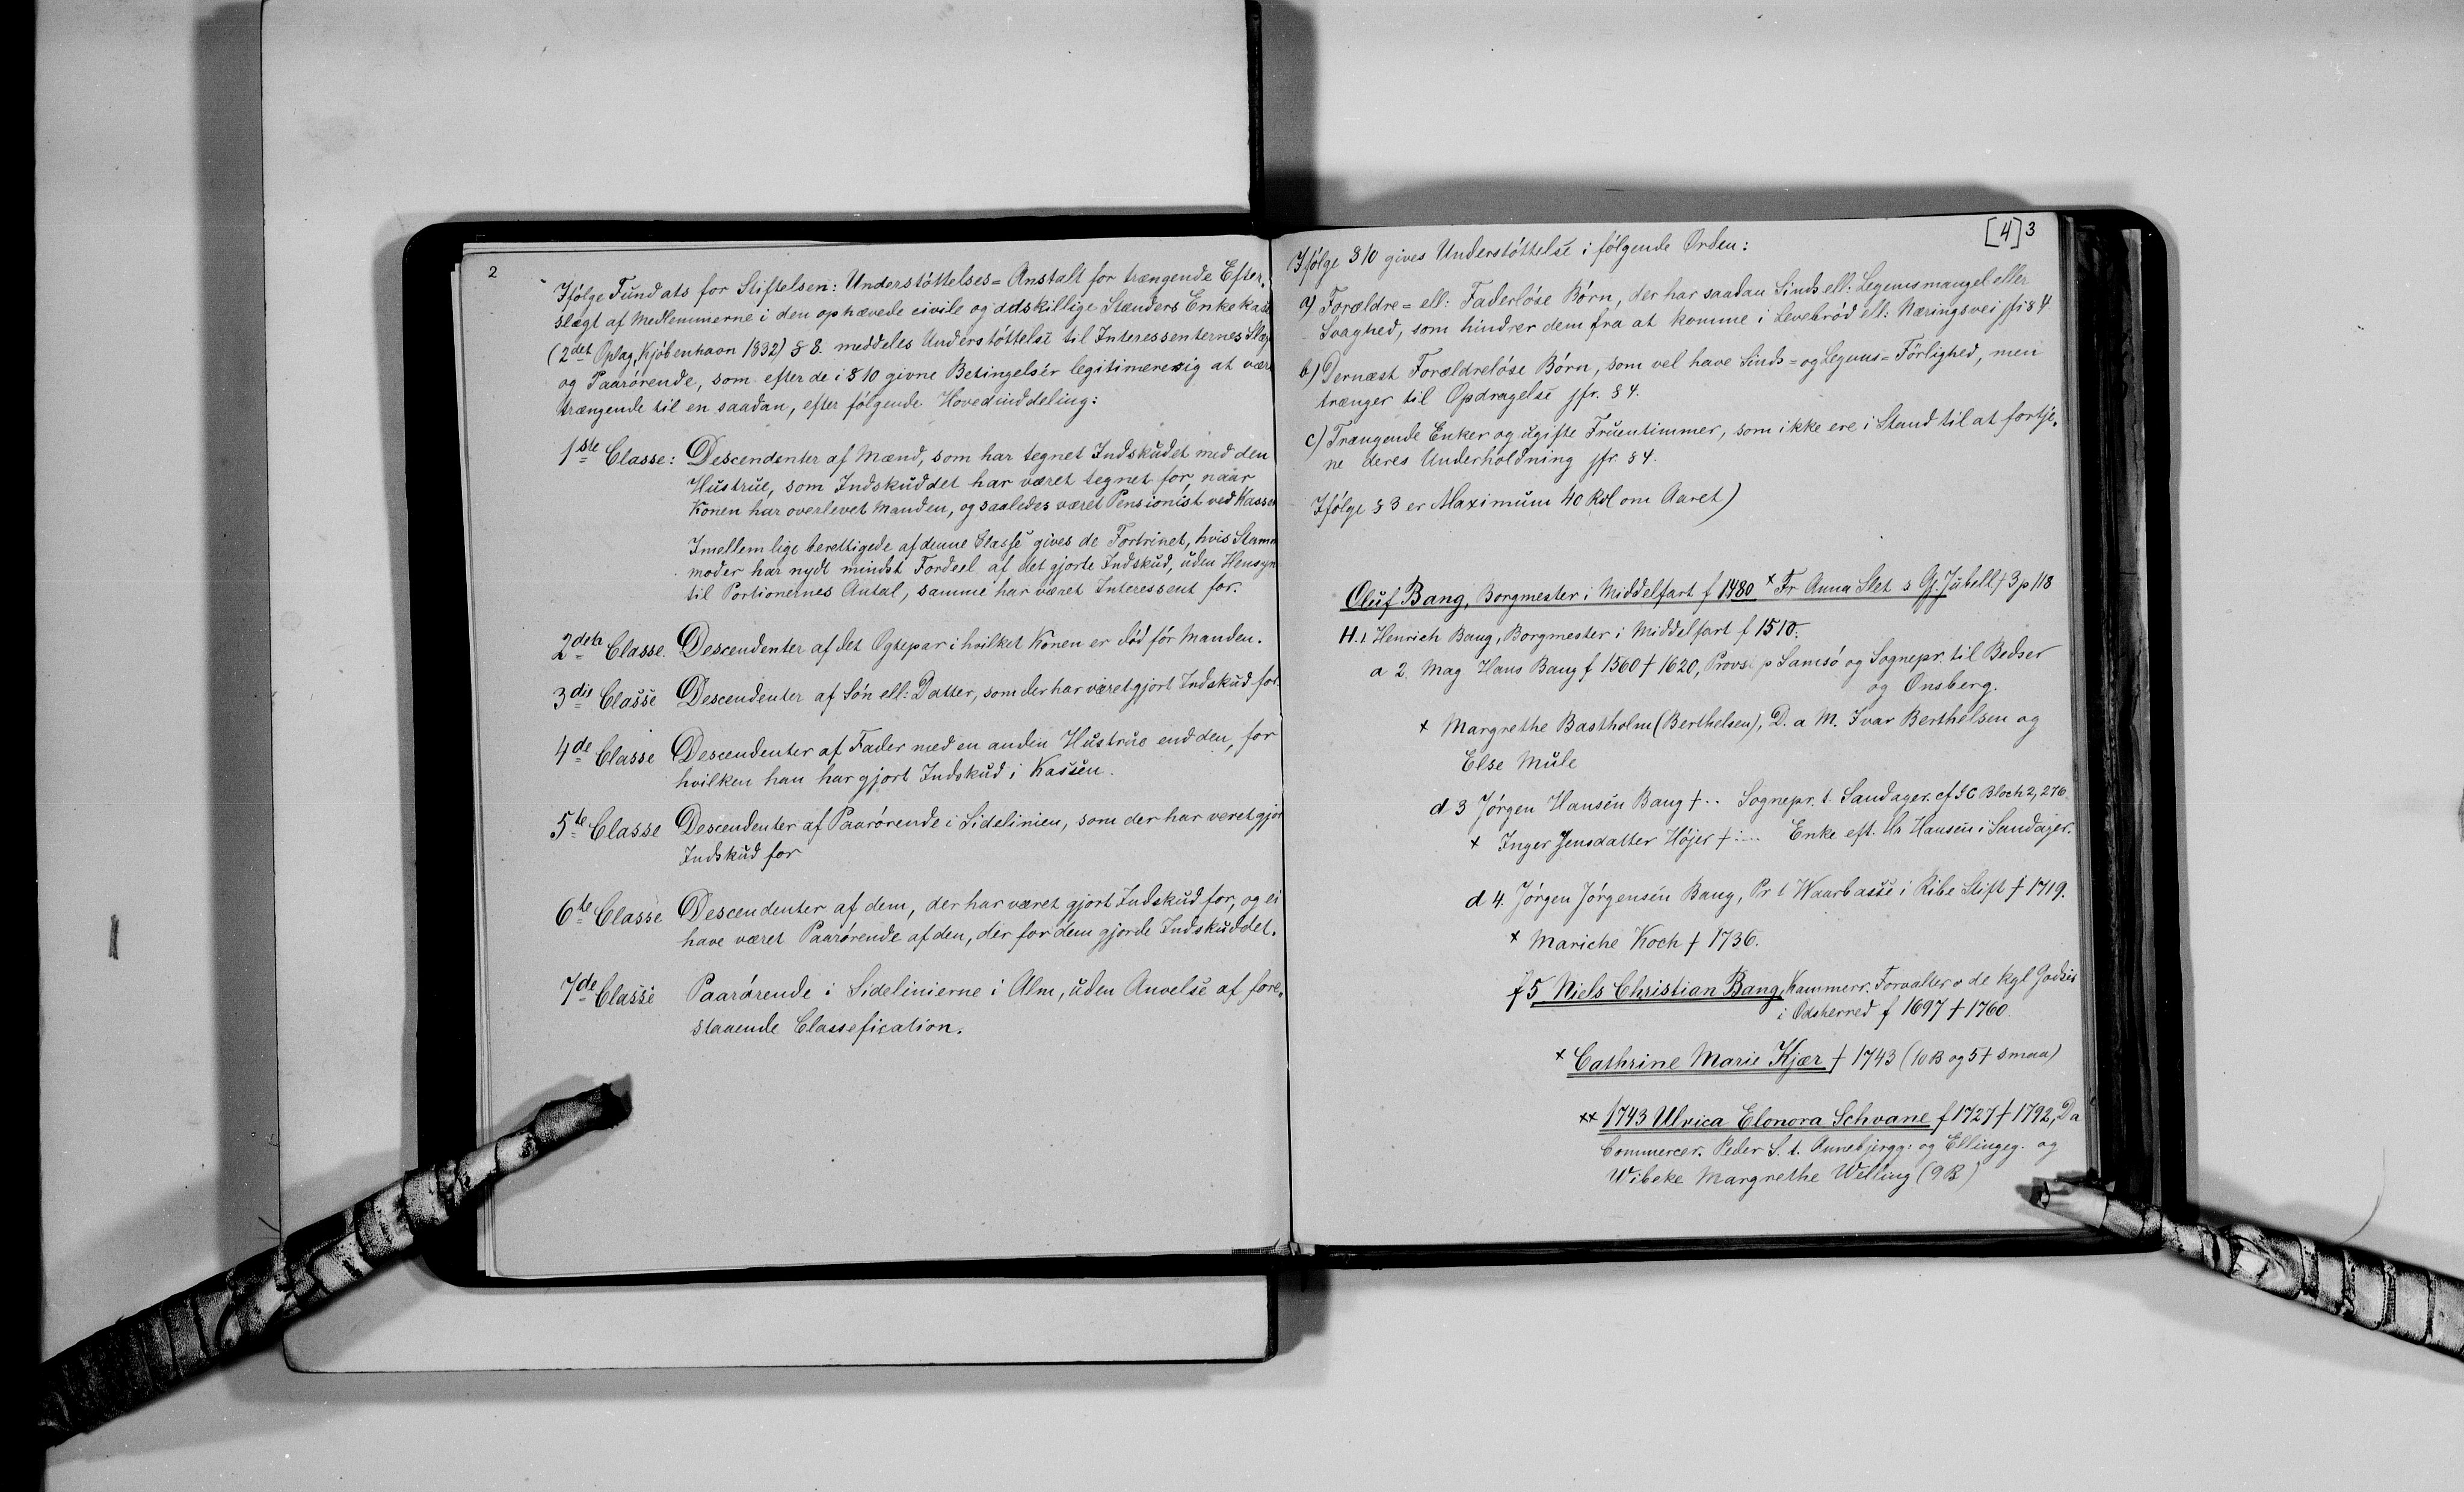 2
Ifølge Fundats for Stiftelsen: Understøttelses= Anstalt for trængende Efter,
slægt af Medlemmerne i den ophævede civile og adskillige Stænders Enkekasse
(2det Oplag, Kjøbenhavn 1832) § 8. meddeles Understøttelse til Interessenternes Slægt
og Paarørende, som efter de i § 10 givne Betingelser legitimere sig at være
trængende til en saadan, efter følgende Hovedinddeling:
1ste Classe: Descendenter af Mænd, som har tegnet Indskudet med den
Hustrue, som Indskuddet har været tegnet for, naar
Konen har overlevet Manden, og saaledes været Pensionist ved Kassen
Imellem lige berettigede af denne Classe gives de Fortrinet, hvis Stam
moder har nydt mindst Fordeel af det gjorte Indskud, uden Hensyn
til Portionernes Antal, samme har været Interessent for.
2den Classe. Descendenter af det Ægtepar i hvilket Konen er død før Manden.
3die Classe Descendenter af Søn ell: Datter, som der har været gjort Indskud for.
4de Classe Descendenter af Fader med en anden Hustrue end den, for
hvilken han har gjort Indskud i Kassen.
5te Classe Descendenter af Paarørende i Sidelinien, som der har veret gjor
Indskud for
6te Classe Descendenter af dem, der har været gjort Indskud for, og ei
have været Paarørende af den, der for dem gjorde Indskuddet.
7de Classe Paarørende i Sidelinierne i Alm, uden Anvelse af fore,
staaende Classefication.
[4] 3
Ifølge § 10 gives Understøttelse i følgende Orden:
a) Forældre= ell: Faderløse Børn, der har saadan Sinds ell: Legemsmangel eller
Svaghed, som hindrer dem fra at komme i Levebrød ell: Næringsvei jfr § 4
b) Dernæst Forældreløse Børn, som vel have Sinds= og Legems= Førlighed, men
trænger til Opdragelse jfr. § 4.
c) Trængende Enker og ugifte Fruentimmer, som ikke ere i Stand til at fortje,
ne deres Underholdning jfr § 4.
Ifølge § 3 er Maximum 40 Rdl om Aaret)
Oluf Bang, Borgmester i Middelfart f 1480 x Fr Anna Slet s Gj. Jubell. f 3 p 118
H. 1 Henrich Bang, Borgmester i Middelfart f 1510.
a 2. Mag Hans Bang f 1560 † 1620, Provst p Samsø og Sognepr. til Bedser
og Onsberg.
x Margrethe Bastholm (Berthelsen), D. a M. Ivar Berthelsen og
Else Mule
d 3 Jørgen Hansen Bang † .. Sognepr. t. Sandager. cf S C Bloch 2, 276
x Inger Jensdatter Højer † .... Enke eft. Hr Hansen i Sandager.
d 4. Jørgen Jørgensen Bang, Pr t Waarbasse i Ribe Stift † 1719.
x Mariche Koch † 1736.
f 5 Niels Christian Bang, Kammerr. Forvalter o de Kgl Godser
i Odsherred f 1697 † 1760.
x Cathrine Marie Kjær † 1743 (10 B og 5 † smaa)
xx 1743 Ulrica Elonora Schvane f 1727 † 1792, D a
Commercer. Peder S. t. Annebjergg: og Ellingeg. og
Wibeke Margrethe Welling (9 B)